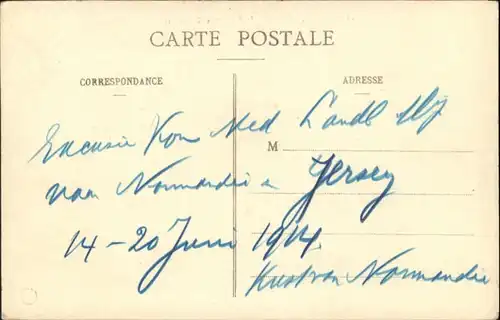 CARTE POSTALE
CORRESPONDANCE
ADRESSE
M
Excursie Kon Ned Landb Mij
naar Normandië en Jersey
14-20 Juni 1914.
Kust van Normandie